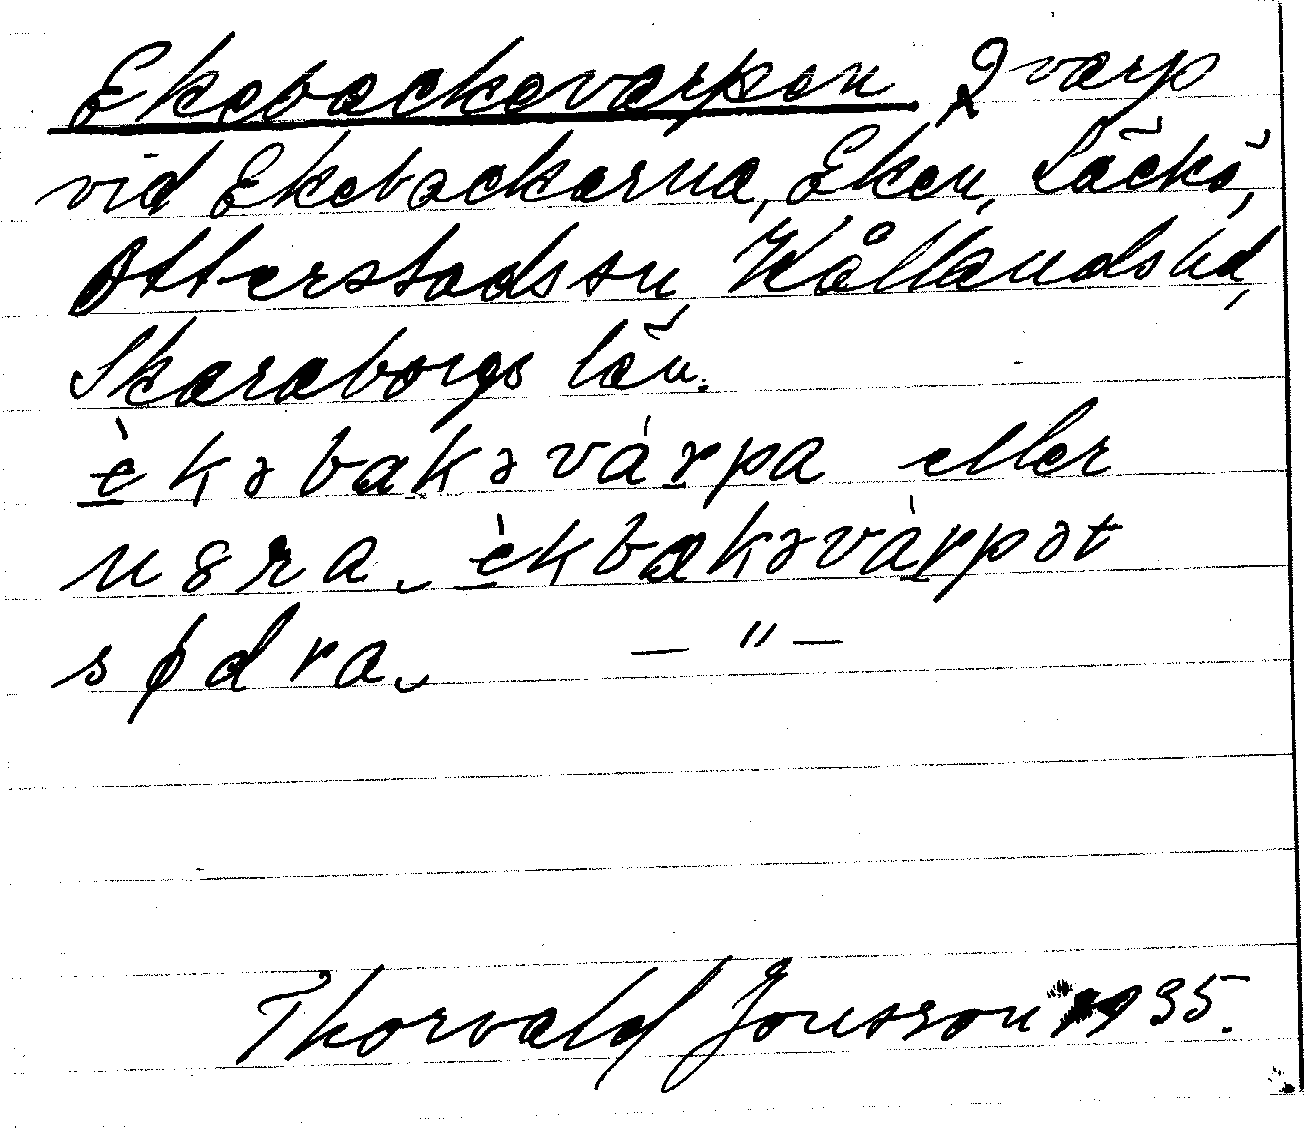 Ekebackevarpen 2 varp
vid Ekebackarna, Eken, Läckö,
Otterstads sn, Kållands hd,
Skaraborgs län.
èkəbakəvárpa eller
nɞra ̮ èkbakəvàrpət
sødra ̮ — " —
Thorvald Jonsson 1935.